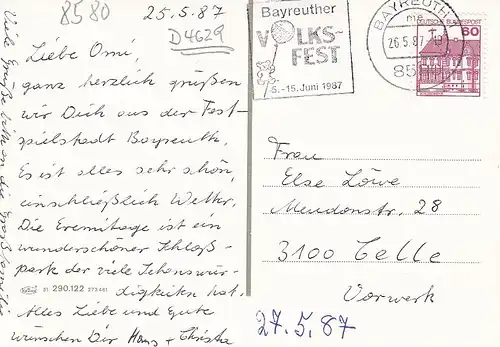 8580
25.5.87
D4629
Liebe Omi,
ganz herzlich grüßen
wir Dich aus der Fest-
spielstadt Bayreuth.
Es ist alles sehr schön,
einschließlich Wetter.
Die Eremitage ist ein
wunderschöner Schloß-
park der viele Sehenswür-
digkeiten hat.
Alles Liebe und Gute
wünschen Dir Hans + Christa
Viele Grüße bitte an die
31 290.122 273 461
Bayreuther
VOLKS-
FEST
5.-15. Juni 1987
BAYREUTH
26.5.87
85
DEUTSCHE BUNDESPOST
60
Frau
Else Löwe
28
3100 Celle
Vorwerk
27.5.87